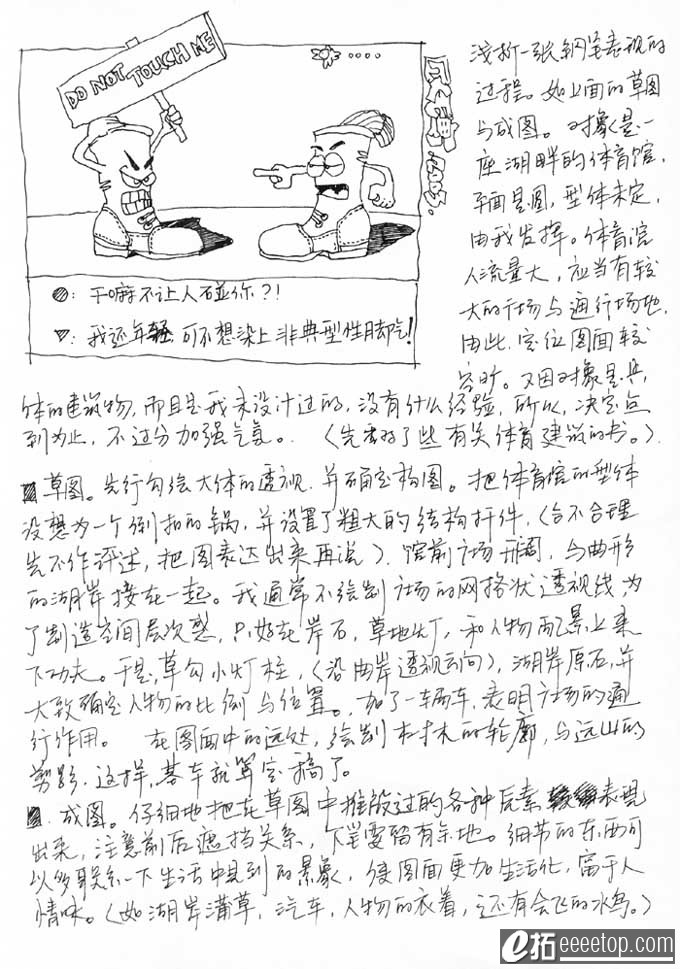 DO NOT TOUCH ME
2003.
●: 干嘛不让人碰你?!
▼: 我还年轻,可不想染上非典型性脚气!
浅析一张钢笔表现的
过程。如上面的草图
与成图。对象是一
座湖畔的体育馆,
平面是圆,型体未定,
由我发挥。体育馆
人流量大,应当有较
大的广场与通行场地,
由此,定位图面较
空旷。又因对象是具
体的建筑物,而且是我未设计过的,没有什么经验,所以,决定点
到为止,不过分加强气氛。(先看了些有关体育建筑的书。)
草图。先行勾绘大体的透视,并确定构图。把体育馆的型体
设想为一个倒扣的锅,并设置了粗大的结构杆件,(合不合理
先不作评述,把图表达出来再说)。馆前广场开阔,与曲形
的湖岸接在一起。我通常不绘制广场的网格状透视线,为
了制造空间层次感,只好在岸石,草地灯,和人物配景上来
下功夫。于是,草勾小灯柱,(沿曲岸透视方向),湖岸原石,并
大致确定人物的比例与位置。加了一辆车,表明广场的通
行作用。 在图面中的远处,绘制树木的轮廓,与远山的
剪影,这样,基本就算定稿了。
成图。仔细地把在草图中推敲过的各种元素表现
出来,注意前后遮挡关系,下笔要留有余地。细节的东西可
以多联系一下生活中见到的景象,使图面更加生活化,富于人
情味。(如湖岸蒲草,汽车,人物的衣着,还有会飞的水鸟。)
e拓 eeeetop.com